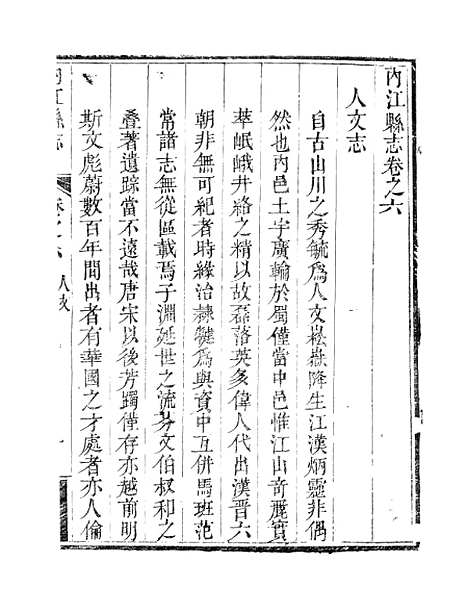 內江縣志卷之六
人文志
自古山川之秀毓爲人文崧嶽降生江漢炳靈非偶
然也內邑土宇廣輪於蜀僅當中邑惟江山奇麗實
萃岷峨井絡之精以故磊落英多偉人代出漢晉六
朝非無可紀者時緣治隸犍爲與資中互併馬班范
常諸志無從區載焉子淵延世之流芬文伯叔和之
叠著遺踪當不遠哉唐宋以後芳躅僅存亦越前明
斯文彪蔚數百年間出者有華國之才處者亦人倫
內江縣志
卷之六 人文